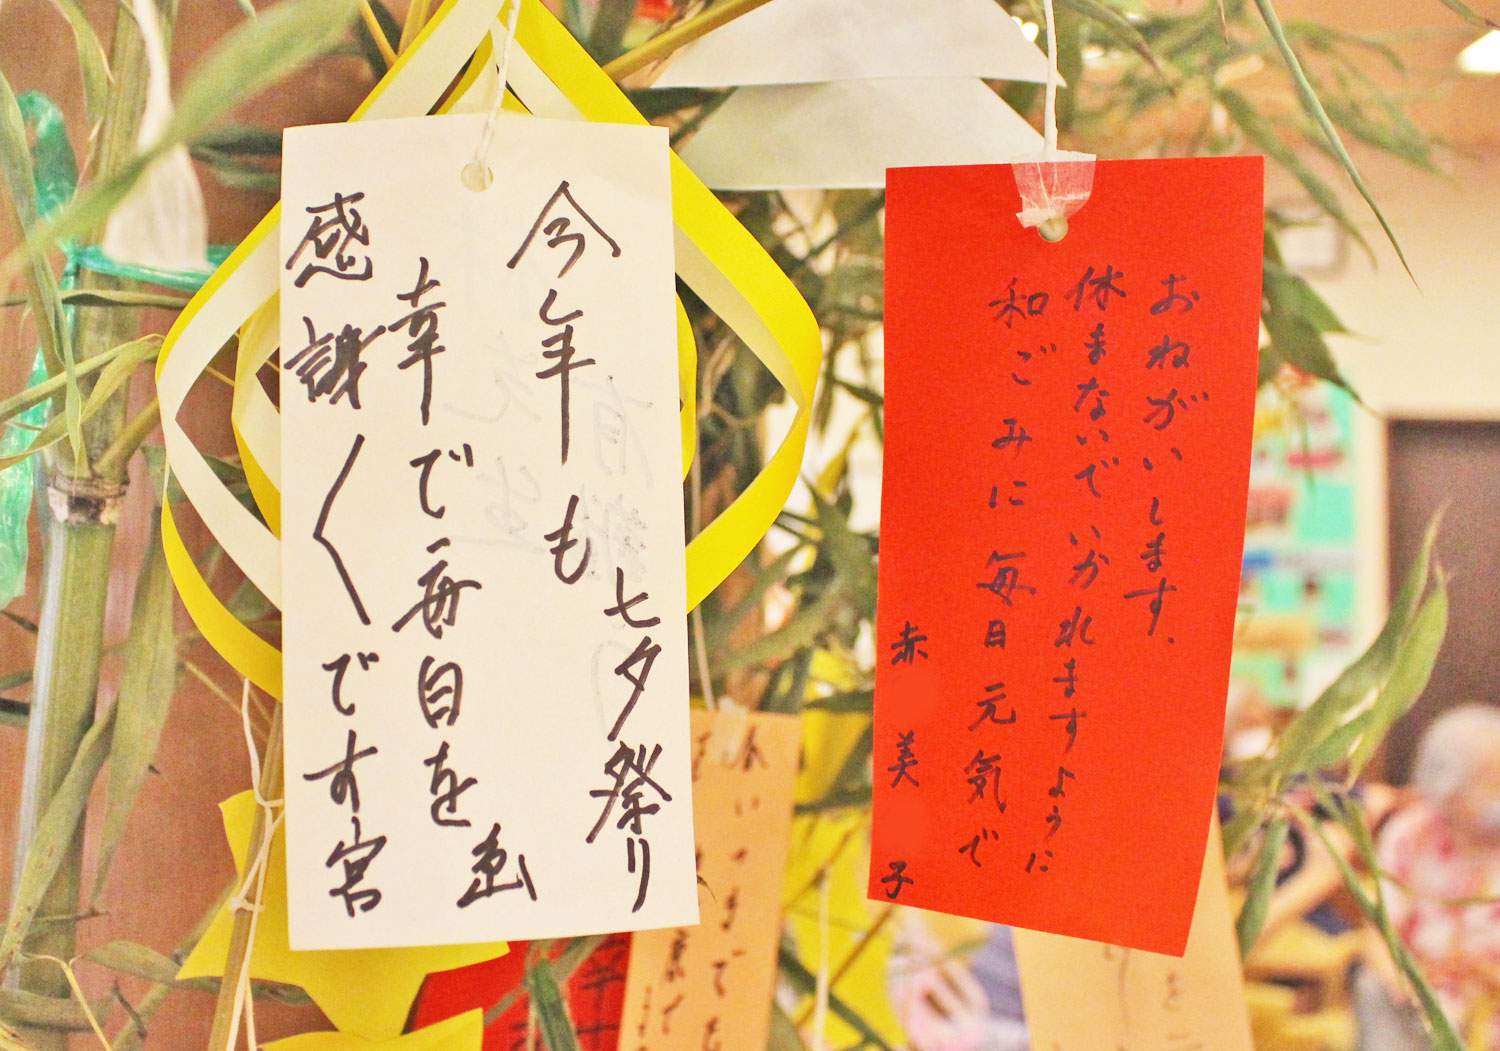 今年も七夕祭り
幸で毎日を
感謝〱です宮
和ごみに毎日元気で
休まないでいかれますように
おねがいします、
赤 美 子